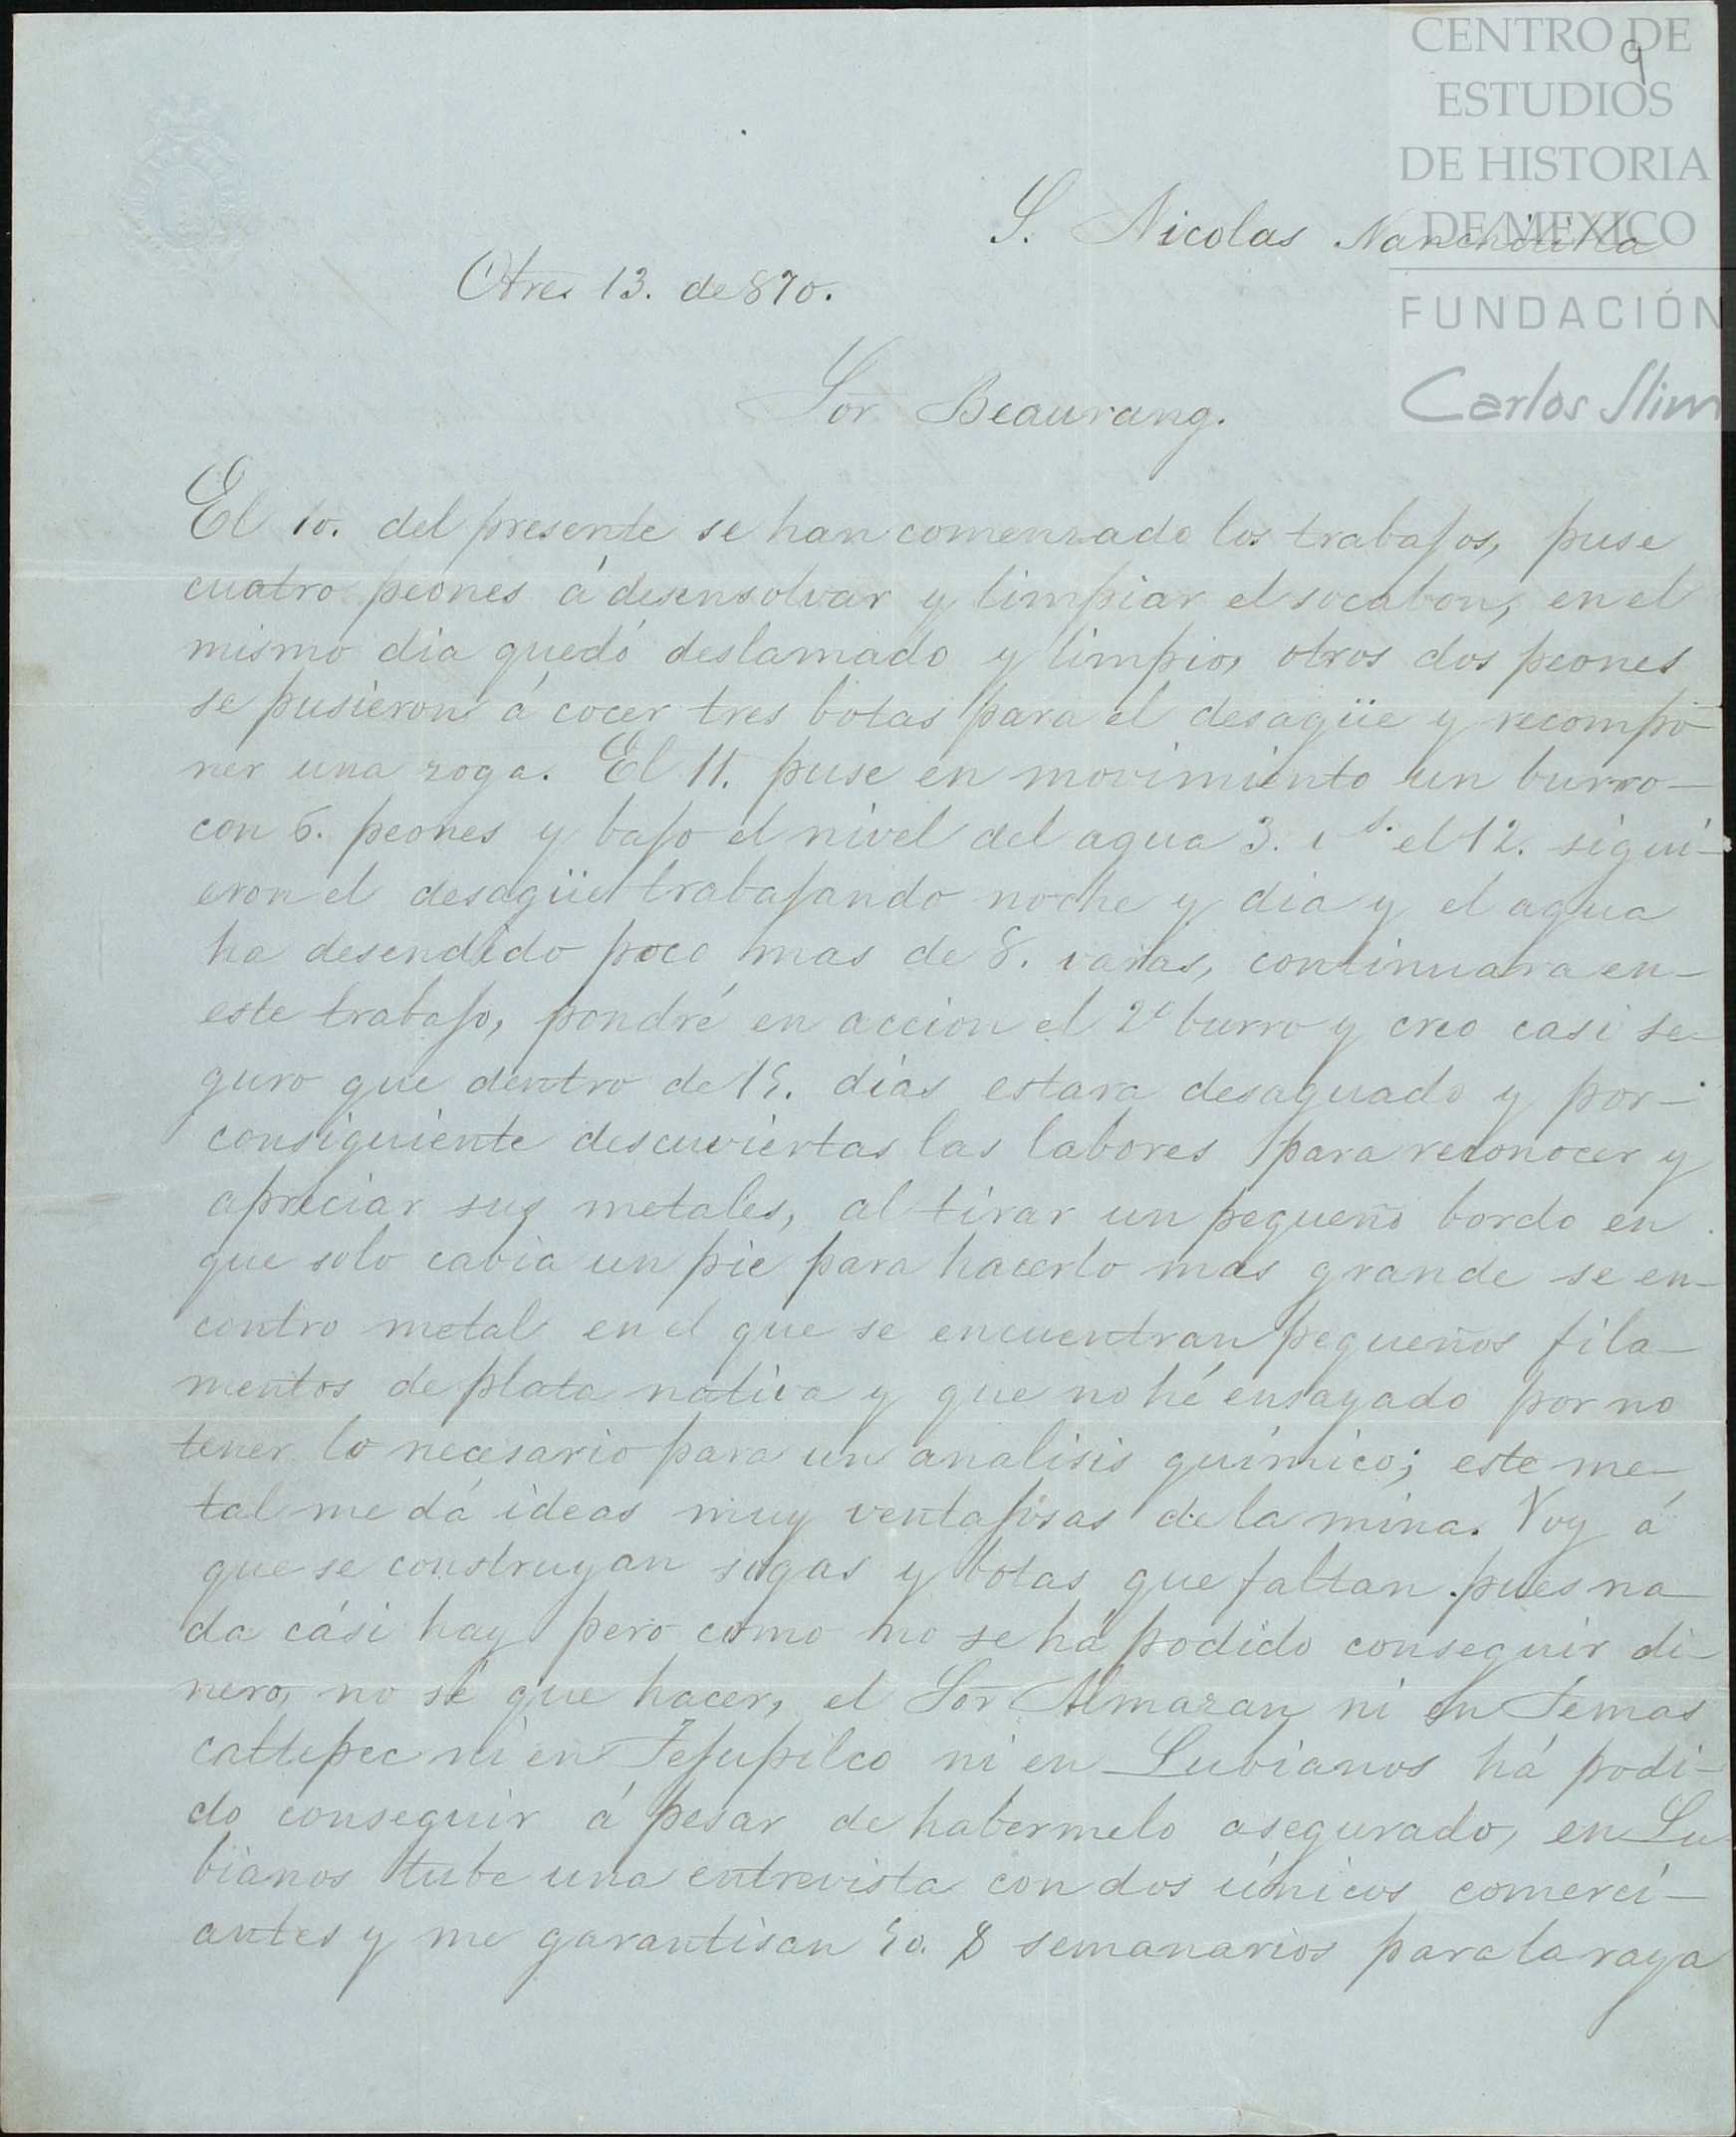 9
CENTRO DE
ESTUDIOS
DE HISTORIA
DE MEXICO
FUNDACIÓN
Carlos Slim
S. Nicolas Nanchititla
Otre. 13. de 870.
Sor Beaurang.
El 10. del presente se han comenzado los trabajos, puse
cuatro peones á desensolvar y limpiar el socabon, en el
mismo dia quedó deslamado y limpio, otros dos peones
se pusieron á cocer tres botas para el desagüe y recompo-
ner una zoga. El 11. puse en movimiento un burro—
con 6. peones y bajo el nivel del agua 3. vs. el 12. sigui-
eron el desagüe trabajando noche y dia y el agua
ha desendido poco mas de 8. varas, continuara en—
este trabajo, pondré en accion el 2o burro y creo casi se-
guro que dentro de 15. dias estara desaguado y por—
consiguiente descuviertas las labores para reconocer y
apreciar sus metales, al tirar un pequeño bordo en
que solo cabia un pie para hacerlo mas grande se en-
contro metal en el que se encuentran pequeños fila-
mentos de plata nativa y que no hé ensayado por no
tener lo necesario para un analisis químico; este me-
tal me dá ideas muy ventajosas de la mina. Voy á
que se construyan sogas y botas que faltan pues na
da cási hay pero como no se há podido conseguir di-
nero, no sé que hacer, el Sor Almazan ni en Temas
caltepec ni en Tejupilco ni en Lubianos há podi-
do conseguir á pesar de habermelo asegurado, en Lu
bianos tube una entrevista con dos únicos comerci-
antes y me garantisan 50. $ semanarios para la raya